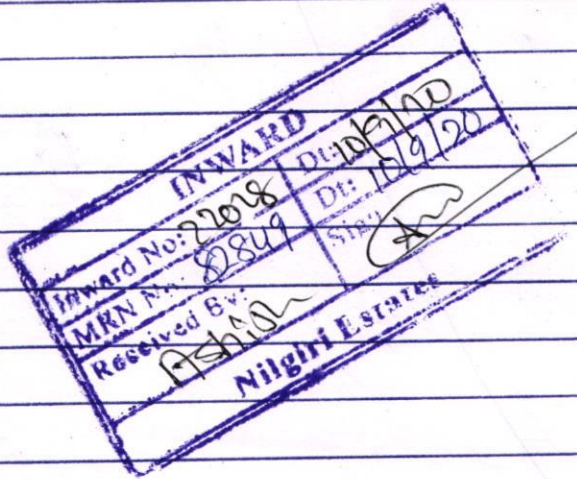 INWARD
Inward No: 22028 Dt: 10/9/20
MRN No: 82849 Dt: 10/9/20
Received By: Sign
Ashish
Nilgiri Estates